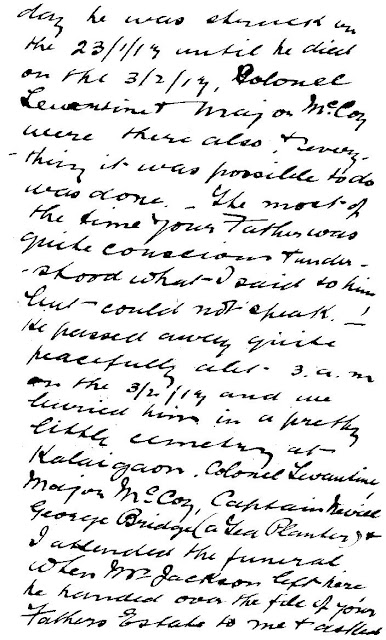 day he was struck on
the 23/1/17 until he died
on the 3/2/17, Colonel
Leventine & Major McCoy
were there also, & every-
-thing it was possible to do
was done. - The most of
the time your Father was
quite conscious & under-
-stood what I said to him
but could not speak. -
He passed away quite
peacefully abt. 3. a. m
on the 3/2/17 and we
buried him in a pretty
little cemetery at
Kalaigaon. Colonel Leventine
Major McCoy, Captain Nevill
George Bridge (a Tea Planter) &
I attended the funeral.
When Mr Jackson left here
he handed over the file of your
Fathers Estate to me & asked